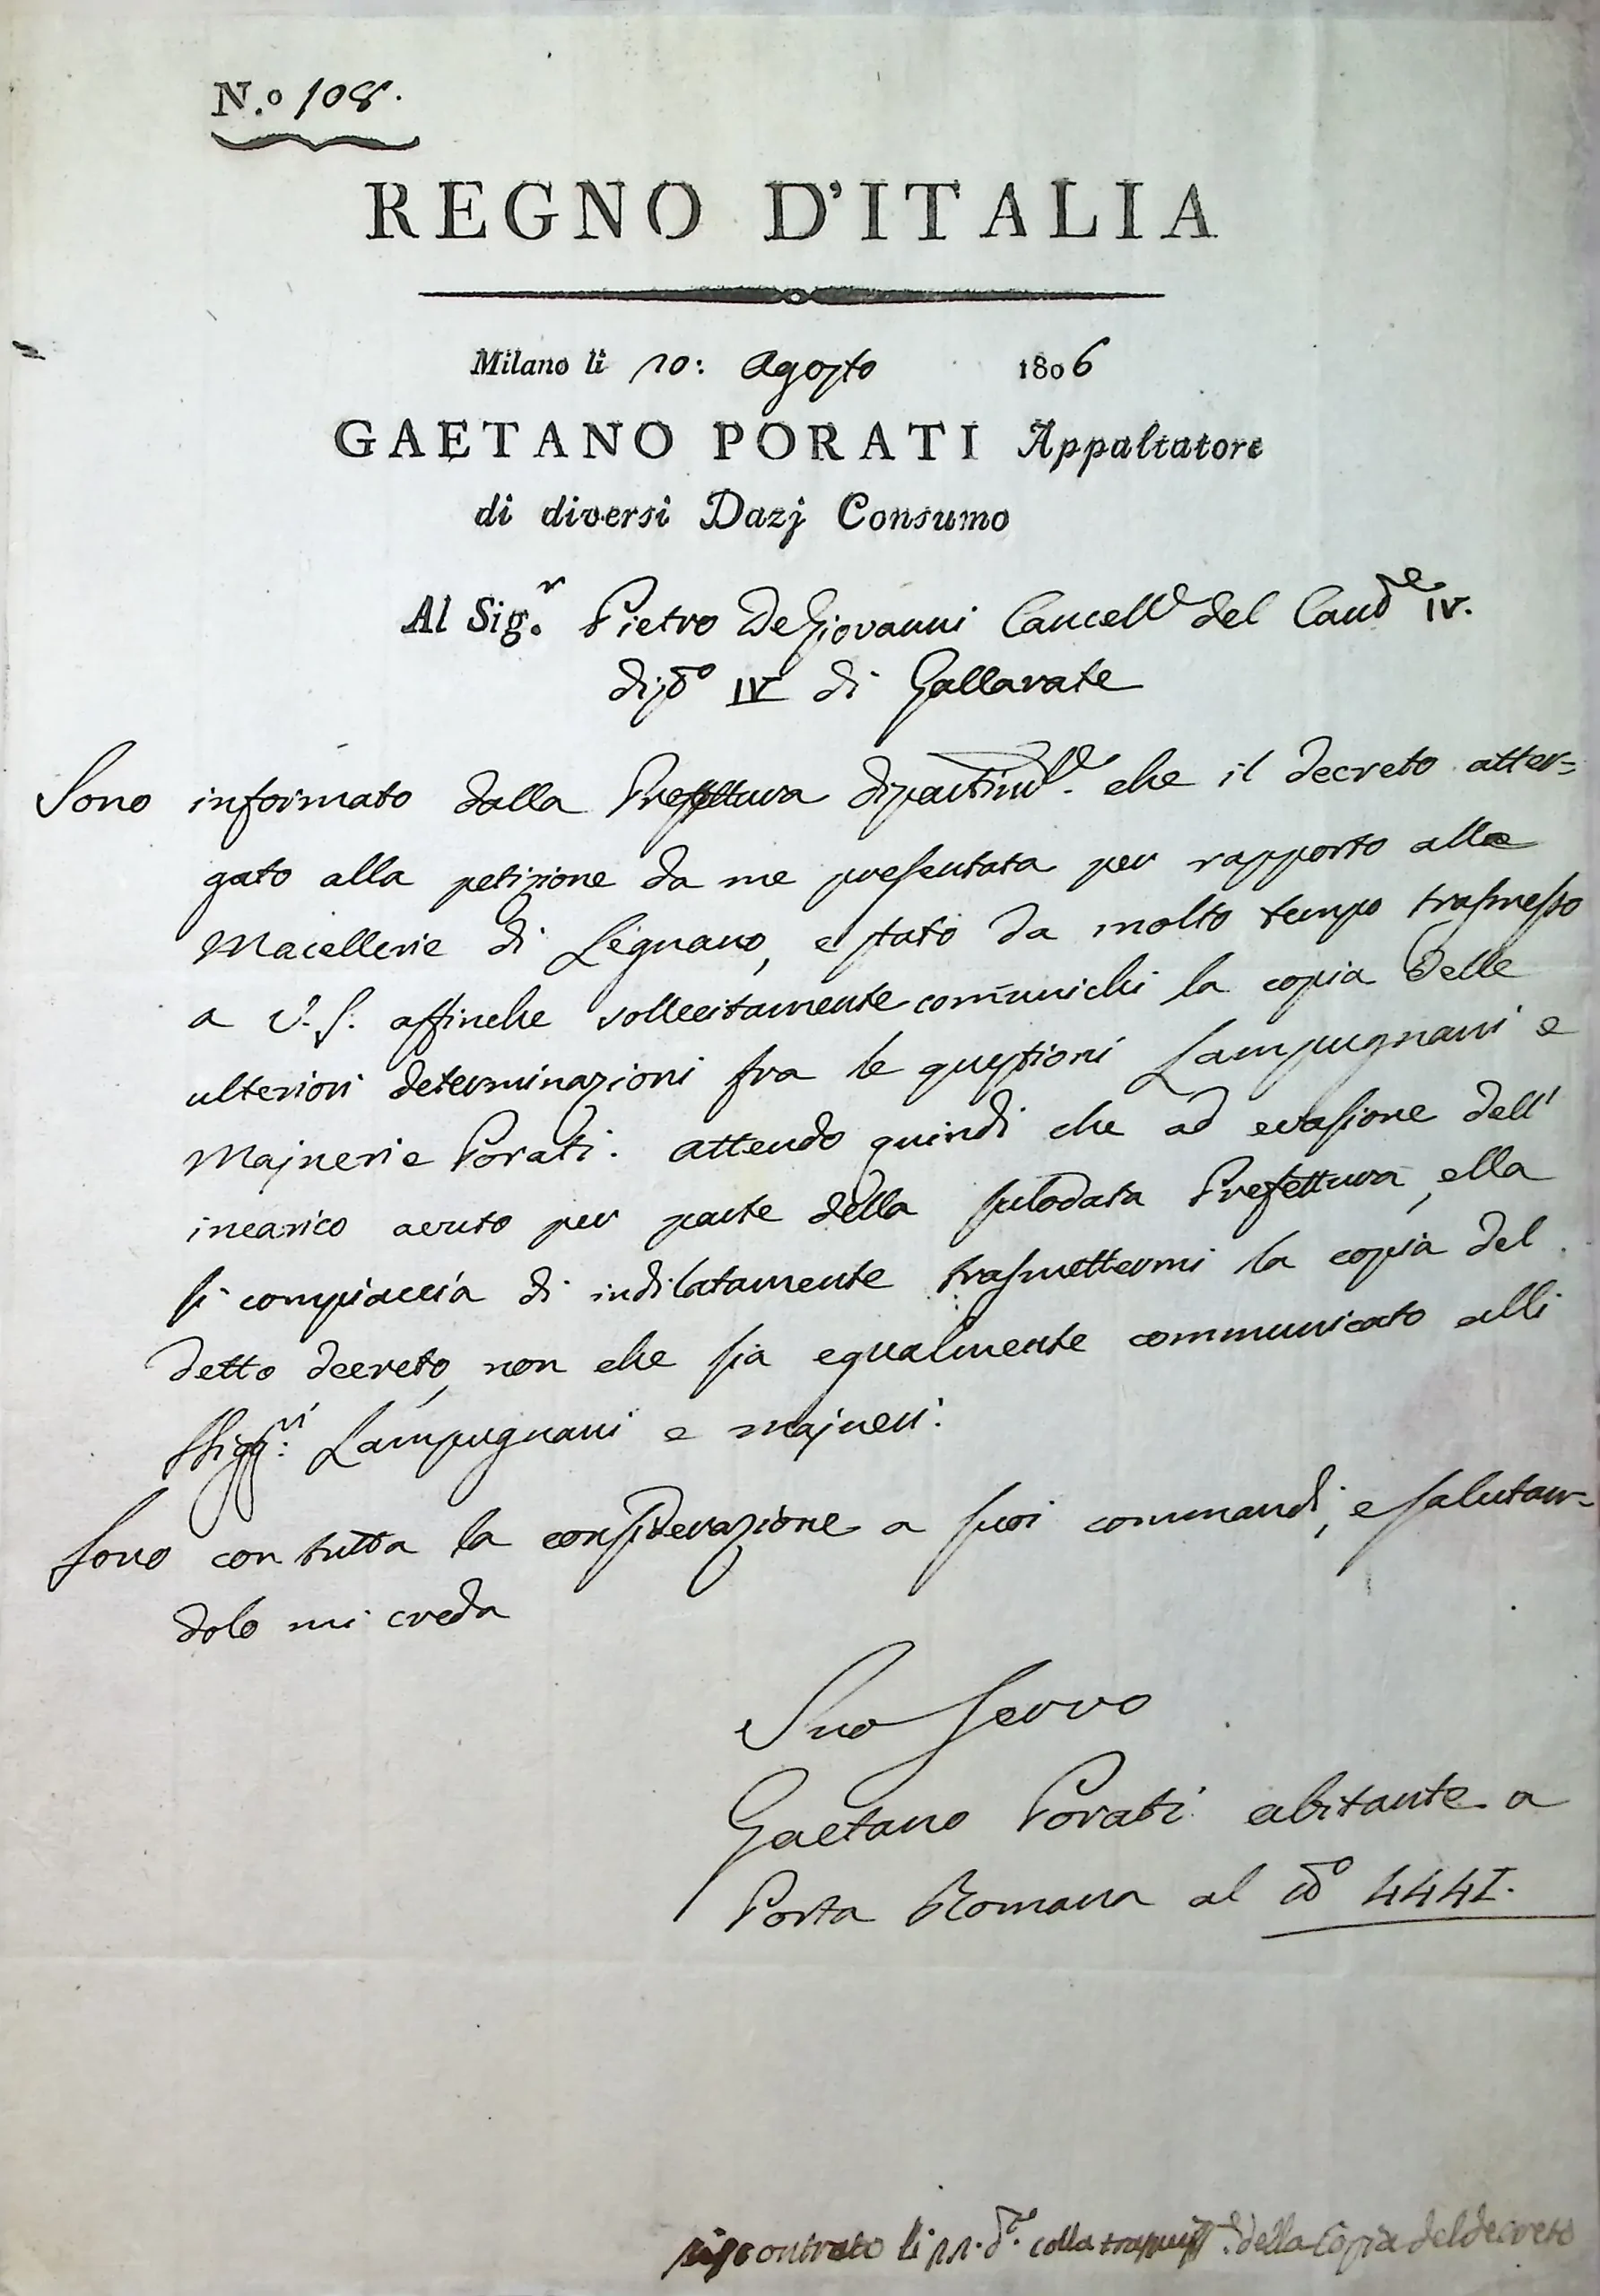 N.o 108.
REGNO D'ITALIA
Milano li 10: Agosto 1806
GAETANO PORATI Appaltatore
di diversi Dazj Consumo
Al Sig.r Pietro DeGiovanni Cancell.e del Cano.e IV.
dis.o IV di Gallarate
Sono informato dalla Prefettura dipartim.le che il decreto atter=
gato alla petizione da me presentata per rapporto alle
Macellerie di Legnano, e stato da molto tempo trasmesso
a V. S. affinche sollecitamente comunichi la copia delle
ulteriori determinazioni fra le questioni Lampugnani e
Majneri e Porati. Attendo quindi che ad evasione dell'
incarico avuto per parte della sulodata Prefettura, ella
si compiaccia di indilatamente trasmettermi la copia del
detto decreto, non che sia egualmente communicato alli
SSigg:ri Lampugnani e Majneri.
Sono con tutta la considerazione a suoi commandi, e salutan=
dolo mi creda
Suo Servo
Gaetano Porati abitante a
Porta Romana al N.o 4441.
riscontrato li 11. d.o colla trasmiss.e della Copia del decreto